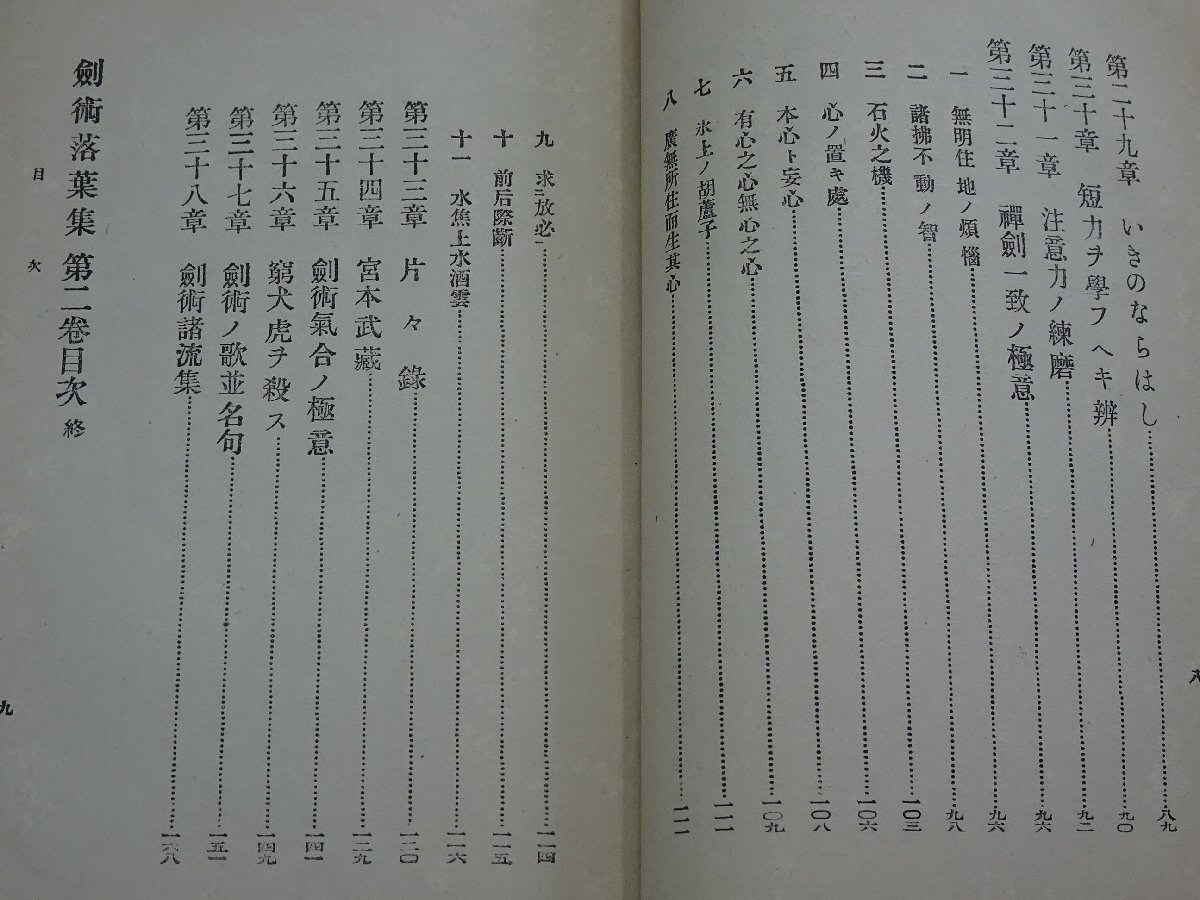 第二十九章 いきのならはし 八九
第三十章 短力ヲ學フヘキ辨 九〇
第三十一章 注意力ノ練磨 九二
第三十二章 禪劍一致ノ極意 九六
一 無明住地ノ煩惱 九六
二 諸拂不動ノ智 九八
三 石火之機 一〇三
四 心ノ置キ處 一〇六
五 本心ト妄心 一〇八
六 有心之心無心之心 一〇九
七 水上ノ胡蘆子 一一一
八 應無所住而生其心 一一一
八
九 求放必 一一四
十 前后際斷 一一五
十一 水焦上水酒雲 一一六
第三十三章 片々錄 一二〇
第三十四章 宮本武藏 一二九
第三十五章 劍術氣合ノ極意 一四一
第三十六章 窮犬虎ヲ殺ス 一四九
第三十七章 劍術ノ歌並名句 一五一
第三十八章 劍術諸流集 一六八
劍術落葉集 第二卷目次 終
目次
九